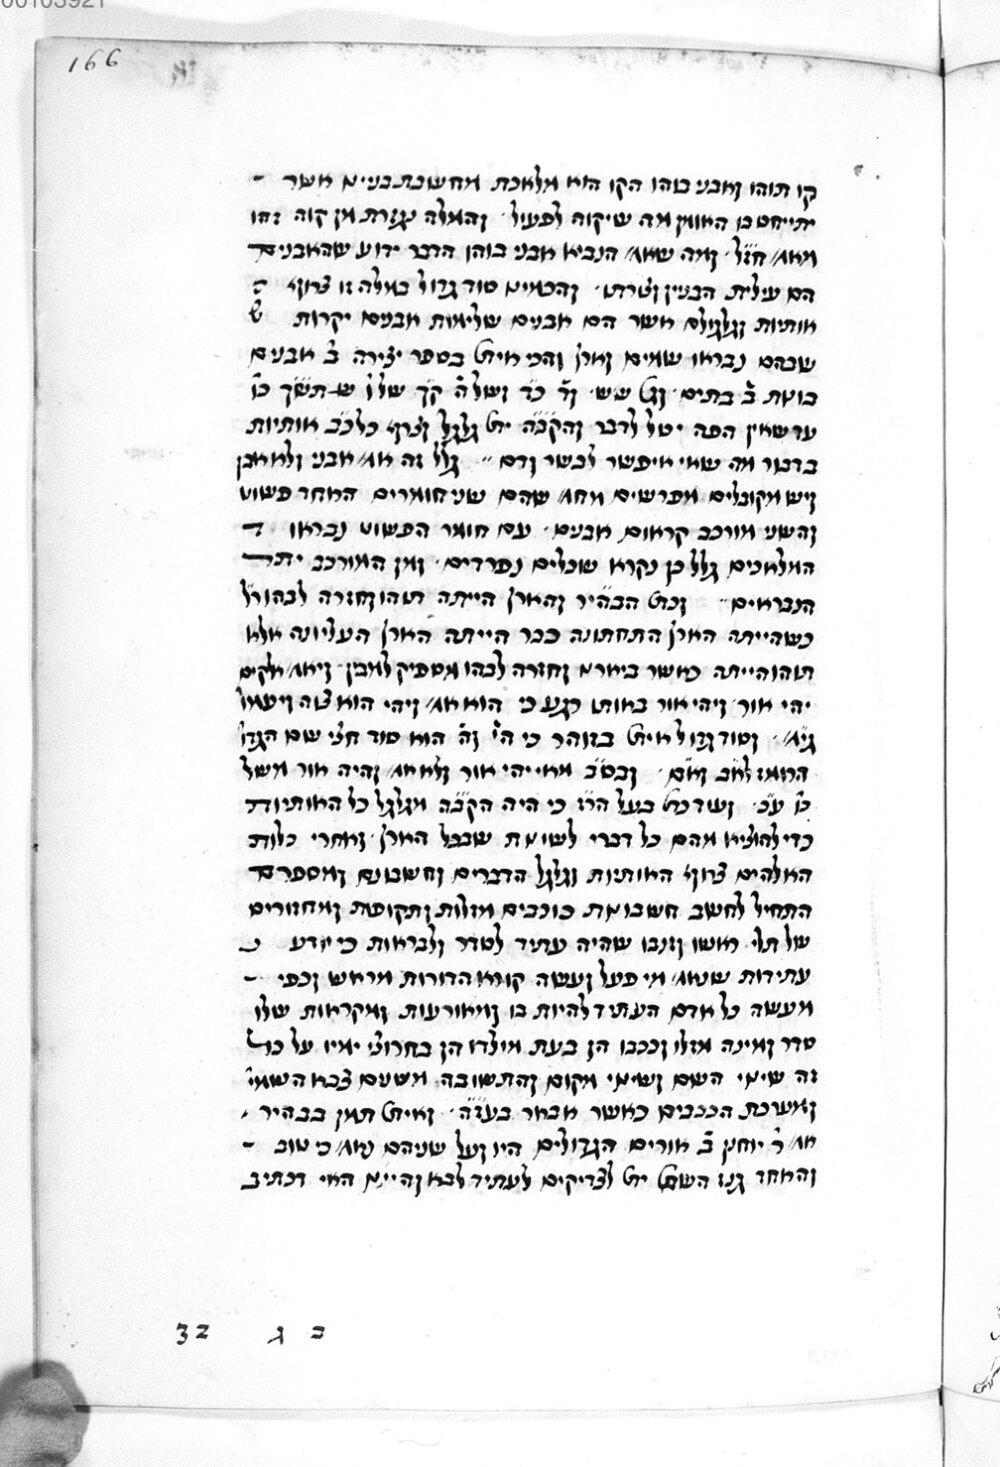 166
קו תוהו ואבני בוהו הקו הוא מלאכת מחשבת בניא אשר
יתייחס בו האומן מה שיקוה לפעול והמלה נגזרת מן קוה וזהו
מאמ' חז״ל ומה שאמ' הנביא אבני בוהו הדבר ידוע שהאבנים
הם עילית הבנין וצורתו והכמיא סוד גדול במלה זו צרוף
אותיות וגלגולם אשר הם אבנים שלימות אבנים יקרות
שבהם נבראו שמים וארץ והכי אית' בספר יצירה ב' אבנים
בונות ב' בתים וג' שש וד' כ״ד ושל ה' ק״ך של ו' ש תש״ך כו'
עד שאין הפה יכול לדבר והקב״ה ית' גלגל וצרף כל כ״ב אותיות
בדבור מה שאי איפשר לבשר ודם גלל זה אמ' אבני ולא אבן
ויש מקובלים מפרשים מאמ' שהם שני חומרים האחד פשוט
והשני מורכב קראום אבנים עם חומר הפשוט נבראו
המלאכים גלל כן נקרא שכלים נפרדים ומן המורכב יתר
הנבראים וכת' הבהיר והארץ הייתה תוהו וחזרה לבהו ר״ל
כשהייתה הארץ התחתונה כבר הייתה הארץ העליונה אלא
תוהו הייתה כאשר ביארא וחזרה לבהו מספיק למבין ויאמ' אלקים
יהי אור ויהי אור באותו רגע כי הוא אמ' ויהי הוא צוה ויעמוד
וסוד גדול אית' בזוהר כי ה' וה' הוא סוד חצי שם הגדו'
הרומז לאב ואם ובס״ב מאי יהי אור ולא אמ' והיה אור משל
כו' ע״כ ועוד כת' בעל הרז כי היה הקב״ה מגלגל כל האותיות
כדי להוציא מהם כל דברי לשונות שבכל הארץ ואחרי כלות
האלהים צרוף האותיות וגלגל הדברים וחשבונם ומספרם
התחיל לחשב חשבונות כוכבים מזלות ותקופות ומחזורים
של תלי ראשו וזנבו שהיה עתיד לסדר ולבראות כי יודע
עתידות שנאמ' מי פעל ועשה קורא הדורות מראש וכפי
מעשה כל אדם העתיד להיות בו ומאורעות ומקראות שלו
סדר ומינה מזלו וככבו הן בעת מולדו הן בחרוצי ימיו על כל
זה שינוי השם ושינוי מקום והתשובה משנים צבא השמי'
ומערכת הככבים כאשר מבואר בעז״ה ואית' תמן בבהיר
אמ' ר' יוחנן ב' אורים הגדולים היו ועל שניהם נאמ' כי טוב
והאחד גנז השם ית' לצדיקים לעתיד לבא והיינו האי דכתיב
32 ג ב